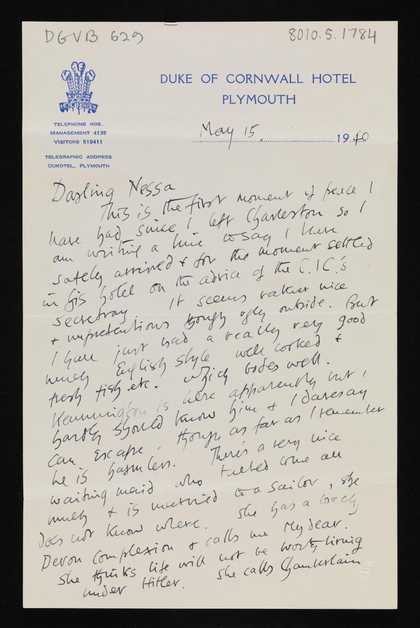 DGVB 629
8010.5.1784
DUKE OF CORNWALL HOTEL
PLYMOUTH
TELEPHONE NOS.
MANAGEMENT 4138
VISITORS
TELEGRAPHIC ADDRESS
DUKOTEL, PLYMOUTH
May 15. 1940
Darling Nessa
This is the first moment of peace I
have had since I left Charleston so I
am writing a line to say I have
safely arrived & for the moment settled
in this hotel on the advice of the C.I.C's
secretary. It seems rather nice
& unpretentious though ugly outside. But
I have just had a really very good
lunch English style well cooked &
fresh fish etc. which bodes well.
Kennington is here apparently but I
hardly should know him & I daresay
can escape, though as far as I remember
he is harmless. There's a very nice
waiting maid who me all
much & is married to a sailor, she
does not know where. She has a lovely
Devon complexion & calls me My dear.
She thinks life will not be worth living
under Hitler. She calls Chamberlain